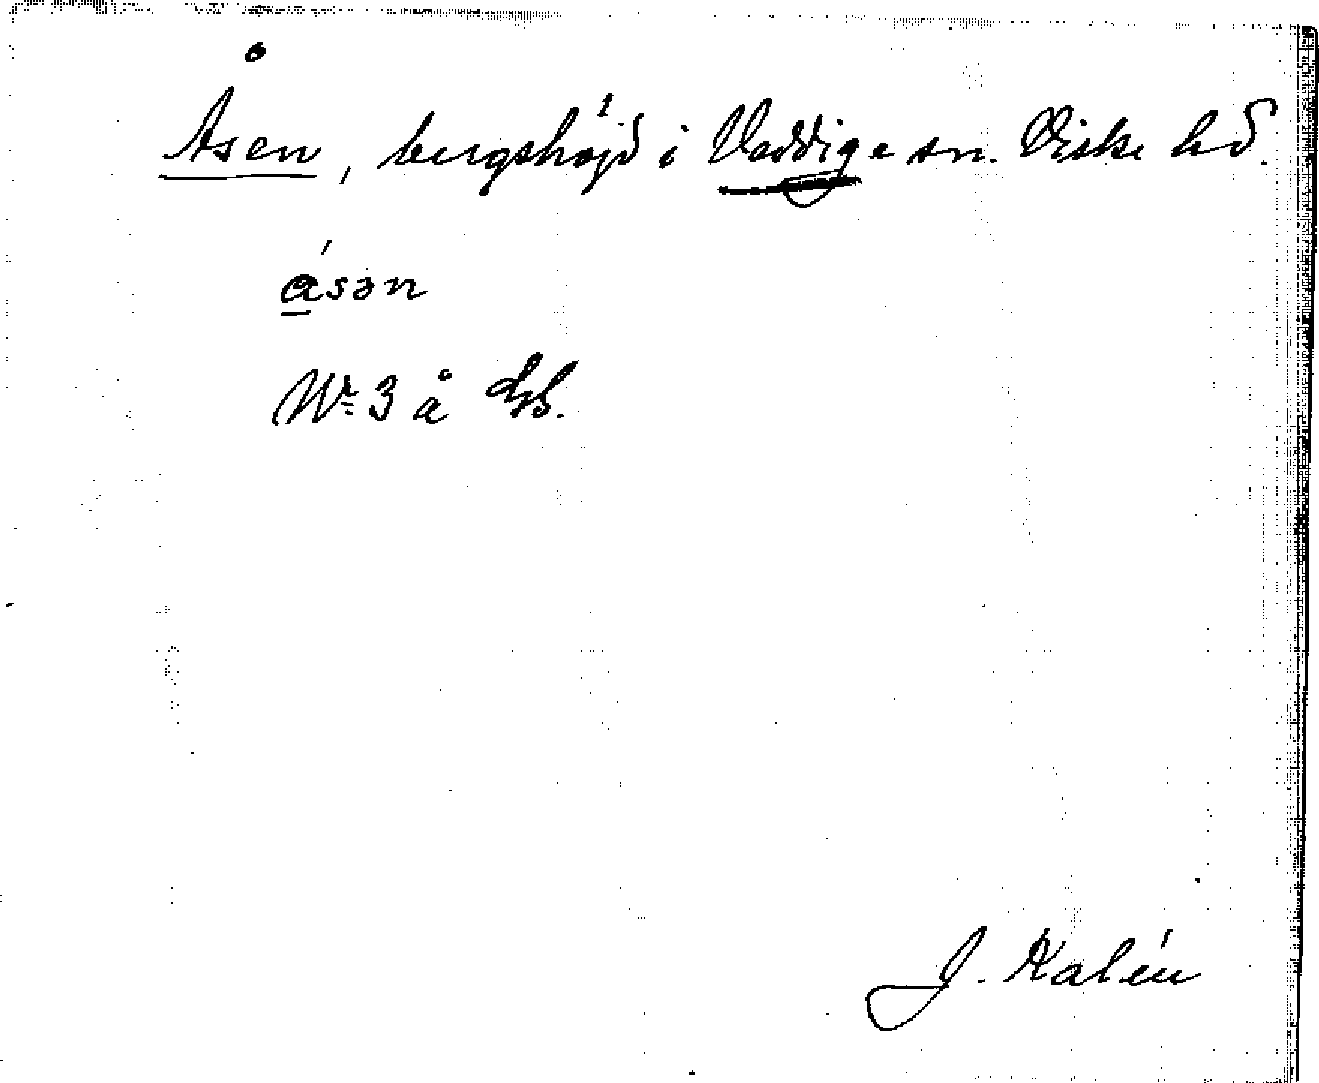 Åsen, bergshöjd i Veddige sn. Viske hd.
åsən
Nr 3 å
J. Kalén